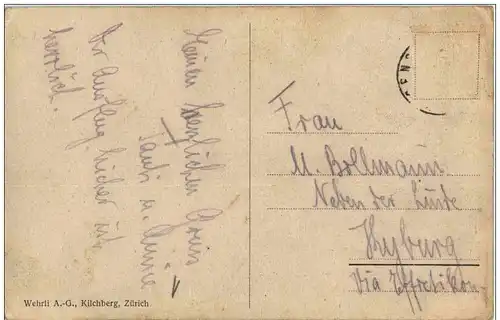 Einen herzlichen Gruss
Tanti u. Annie
Der Ausflug hieher ist
herrlich.
Frau
M. Bollmann
Neben der Linde
Kyburg
Via Effretikon.
Wehrli A.-G., Kilchberg, Zürich